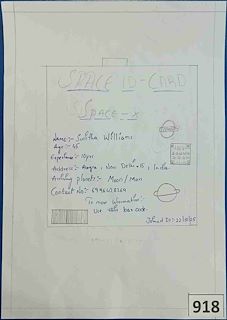 SPACE ID-CARD
SPACE-X
Name:- Sunitha Williams
Age:- 45
Experience:- 10 yrs
Address:- , New Delhi - 15, India.
planets:- Moon/Mars
Contact No:-
To more information:
Use this bar code.
Joined
918